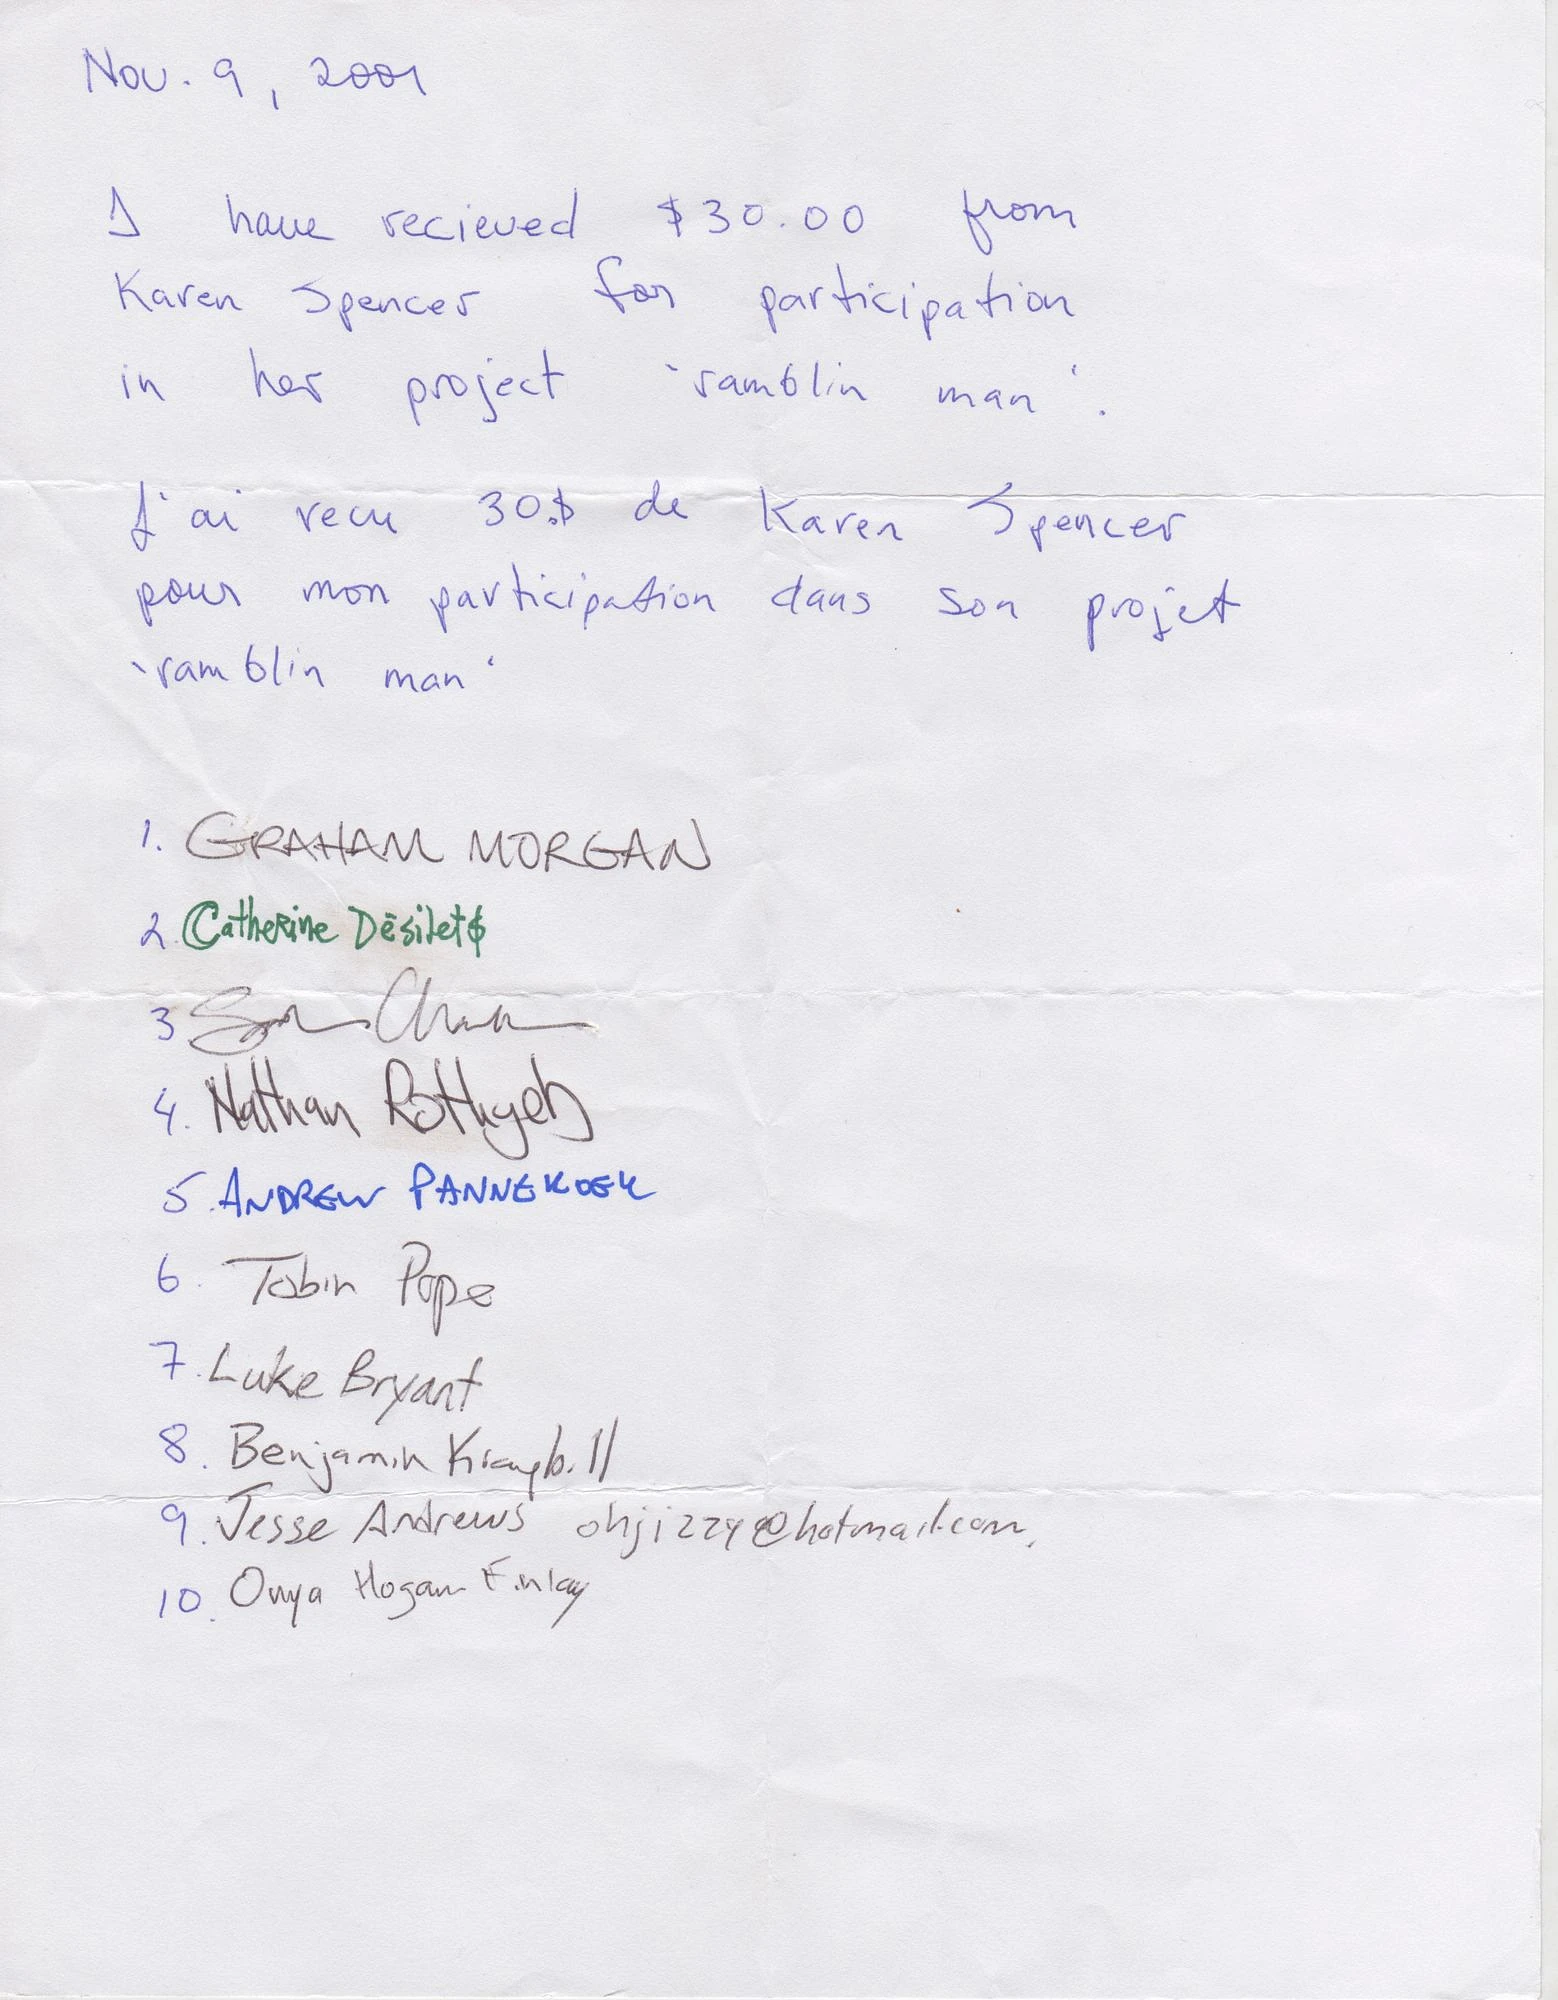 Nov. 9, 2001
I have recieved $30.00 from
Karen Spencer for participation
in her project 'ramblin man'.
J'ai recu 30.$ de Karen Spencer
pour mon participation dans son projet
'ramblin man'
1. GRAHAM MORGAN
2. Catherine Désilets
3
4. Nathan
5. ANDREW PANNEKOEK
6. Tobin Pope
7. Luke Bryant
8. Benjamin Kraybill
9. Jesse Andrews ohjizzy@hotmail.com
10. Onya Hogan Finlay